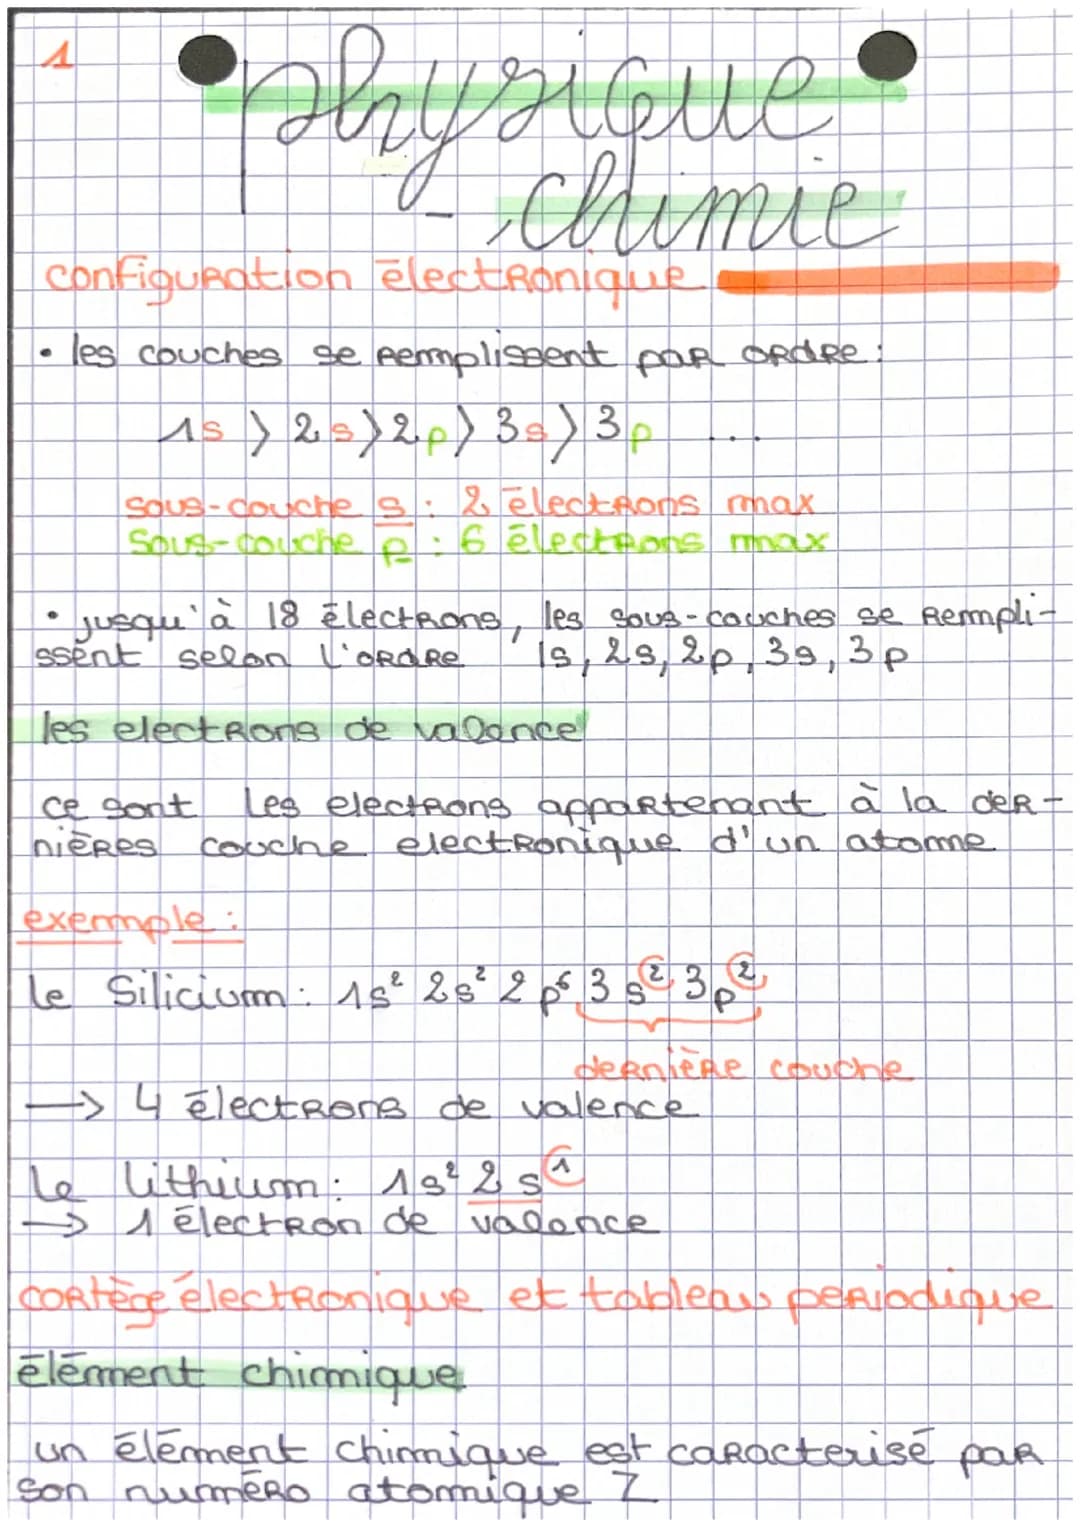 1
physique
- chimie
configuration électronique
• les couches se remplissent par ordre :
1s > 2s > 2p > 3s > 3p ...
sous-couche s : 2 électrons max
sous-couche p : 6 électrons max
• jusqu'à 18 électrons, les sous-couches se rempli-
ssent selon l'ordre 1s, 2s, 2p, 3s, 3p
les electrons de valence
ce sont les electrons appartenant à la der-
nières couche electronique d'un atome
exemple :
le Silicium : 1s² 2s² 2p⁶ 3s² 3p²
dernière couche
→ 4 électrons de valence
Le lithium : 1s² 2s¹
→ 1 électron de valence
cortège électronique et tableau periodique
élément chimique
un élément chimique est caracterisé par
son numéro atomique Z